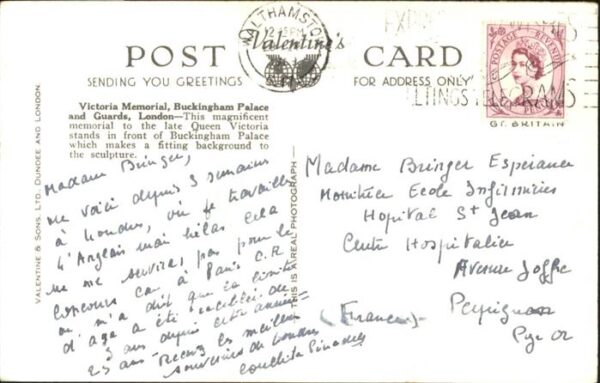 POST CARD
Valentine's
WALTHAMSTOW
12 15 PM
SENDING YOU GREETINGS
FOR ADDRESS ONLY
TELEGRAMS
POSTAGE REVENUE
GT. BRITAIN
Victoria Memorial, Buckingham Palace
and Guards, London—This magnificent
memorial to the late Queen Victoria
stands in front of Buckingham Palace
which makes a fitting background to
the sculpture.
VALENTINE & SONS, LTD., DUNDEE AND LONDON.
THIS IS A REAL PHOTOGRAPH
Madame Bringer,
me voici depuis 3 semaines
à Londres, où je travaille
l'Anglais mais hélas cela
ne me servira pas pour le
concours car à Paris C.R.
on m'a dit que la limite
d'age a été de
3 ans depuis cette année
25 ans Recevez les meilleurs
souvenirs de Londres
Conchita
Madame Bringer Esperance
Monitrice Ecole Infirmières
Hopital St Jean
Centre Hospitalier
Avenue Joffre
Perpignan
(France)
Pyr Or